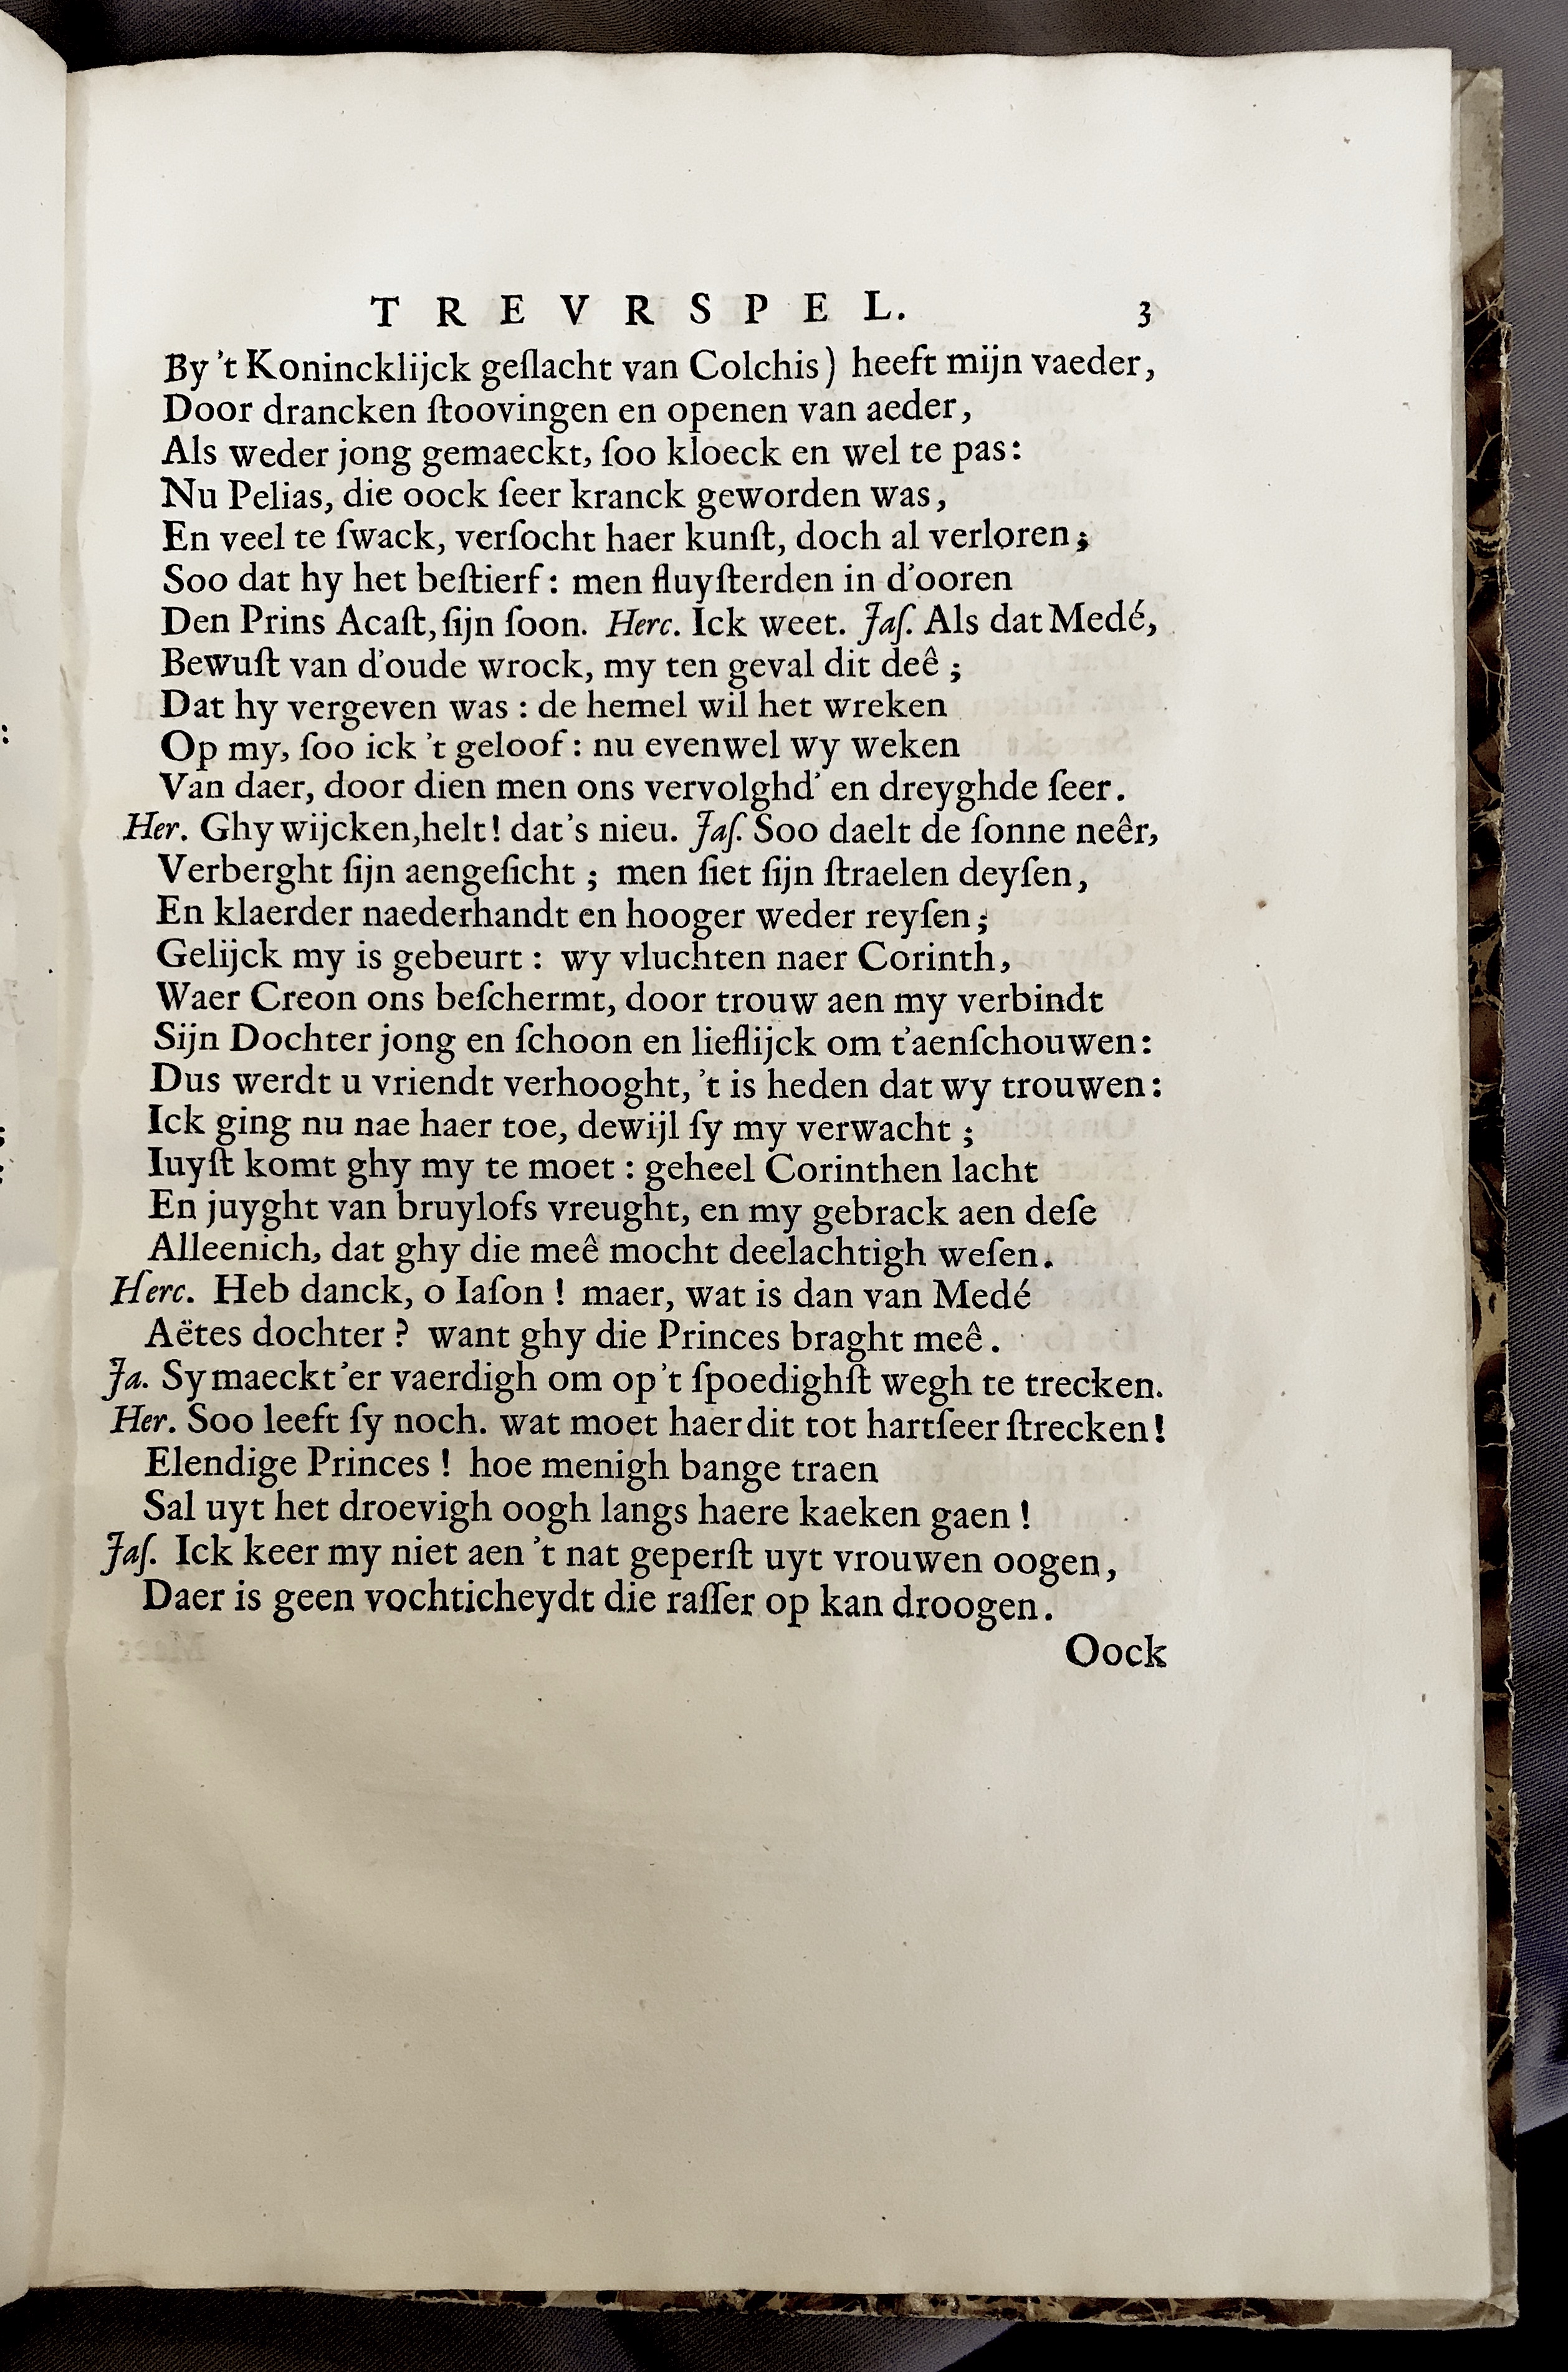 TREVRSPEL. 3
By 't Konincklijck geſlacht van Colchis) heeft mijn vaeder,
Door drancken ſtoovingen en openen van aeder,
Als weder jong gemaeckt, ſoo kloeck en wel te pas:
Nu Pelias, die oock ſeer kranck geworden was,
En veel te ſwack, verſocht haer kunſt, doch al verloren;
Soo dat hy het beſtierf: men fluyſterden in d'ooren
Den Prins Acaſt, ſijn ſoon. Herc. Ick weet. Jaſ. Als dat Medé,
Bewuſt van d'oude wrock, my ten geval dit deê;
Dat hy vergeven was: de hemel wil het wreken
Op my, ſoo ick 't geloof: nu evenwel wy weken
Van daer, door dien men ons vervolghd' en dreyghde ſeer.
Her. Ghy wijcken, helt! dat's nieu. Jaſ. Soo daelt de ſonne neêr,
Verberght ſijn aengeſicht; men ſiet ſijn ſtraelen deyſen,
En klaerder naederhandt en hooger weder reyſen;
Gelijck my is gebeurt: wy vluchten naer Corinth,
Waer Creon ons beſchermt, door trouw aen my verbindt
Sijn Dochter jong en ſchoon en lieflijck om t'aenſchouwen:
Dus werdt u vriendt verhooght, 't is heden dat wy trouwen:
Ick ging nu nae haer toe, dewijl ſy my verwacht;
Iuyſt komt ghy my te moet: geheel Corinthen lacht
En juyght van bruylofs vreught, en my gebrack aen deſe
Alleenich, dat ghy die meê mocht deelachtigh weſen.
Herc. Heb danck, o Iaſon! maer, wat is dan van Medé
Aëtes dochter? want ghy die Princes braght meê.
Ja. Sy maeckt'er vaerdigh om op 't ſpoedighſt wegh te trecken.
Her. Soo leeft ſy noch. wat moet haer dit tot hartſeer ſtrecken!
Elendige Princes! hoe menigh bange traen
Sal uyt het droevigh oogh langs haere kaeken gaen!
Jaſ. Ick keer my niet aen 't nat geperſt uyt vrouwen oogen,
Daer is geen vochticheydt die raſſer op kan droogen.
Oock